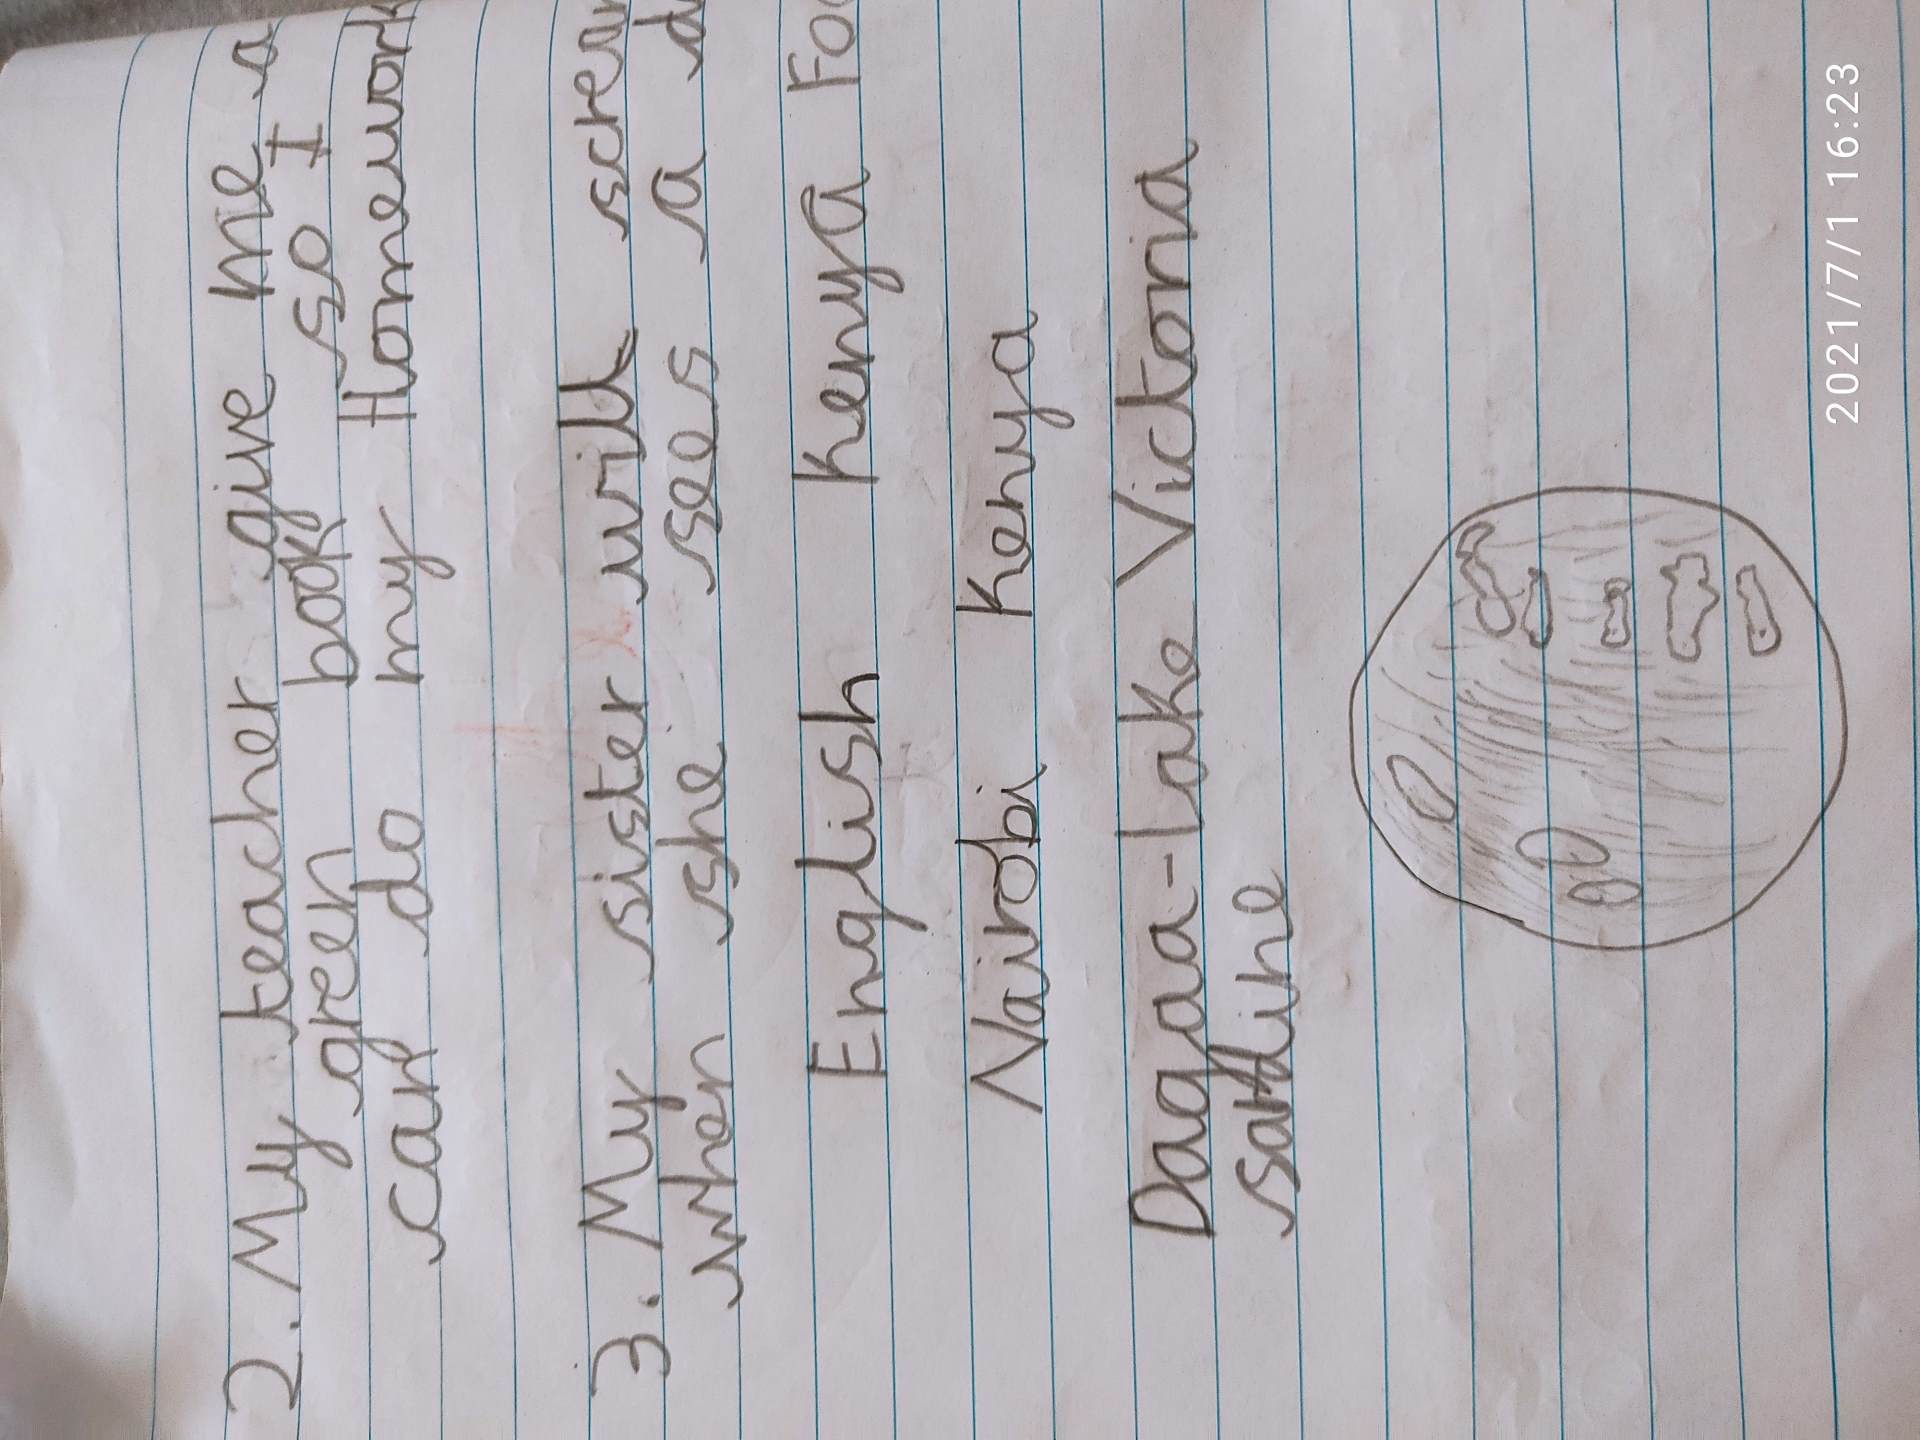 2. My teacher give me a
green book so I
can do my Homework
3. My sister will scream
when she sees a d
English Kenya Foo
Nairobi Kenya
Dagaa-lake Victoria
sardine
2021/7/1 16:23